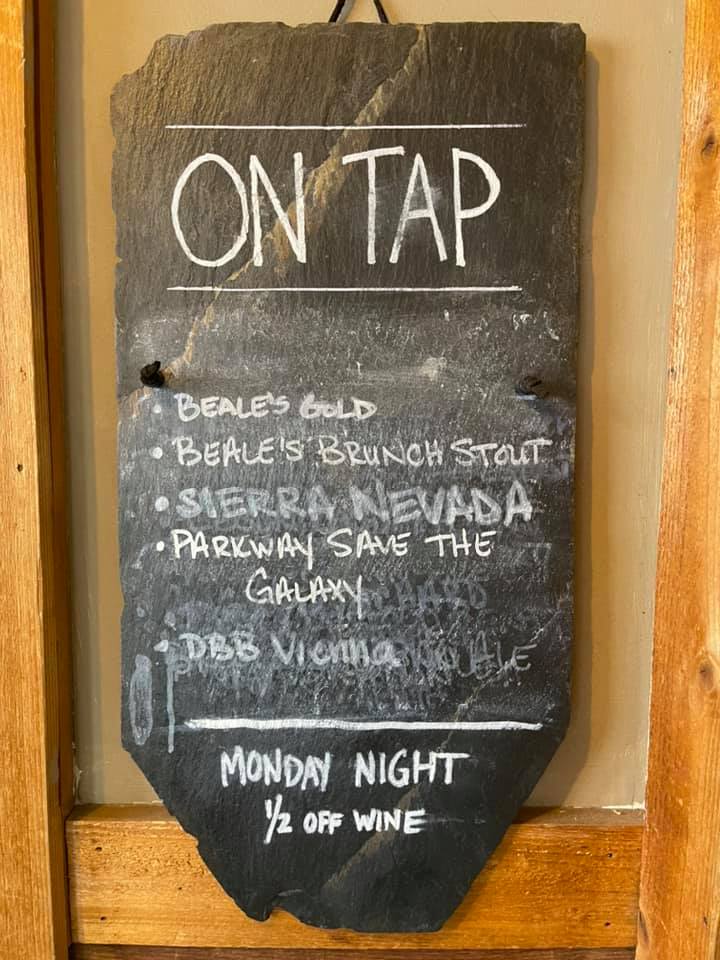 ON TAP
• BEALE'S GOLD
• BEALE'S BRUNCH STOUT
• SIERRA NEVADA
• PARKWAY SAVE THE
GALAXY
• DBB Vienna
MONDAY NIGHT
1/2 OFF WINE